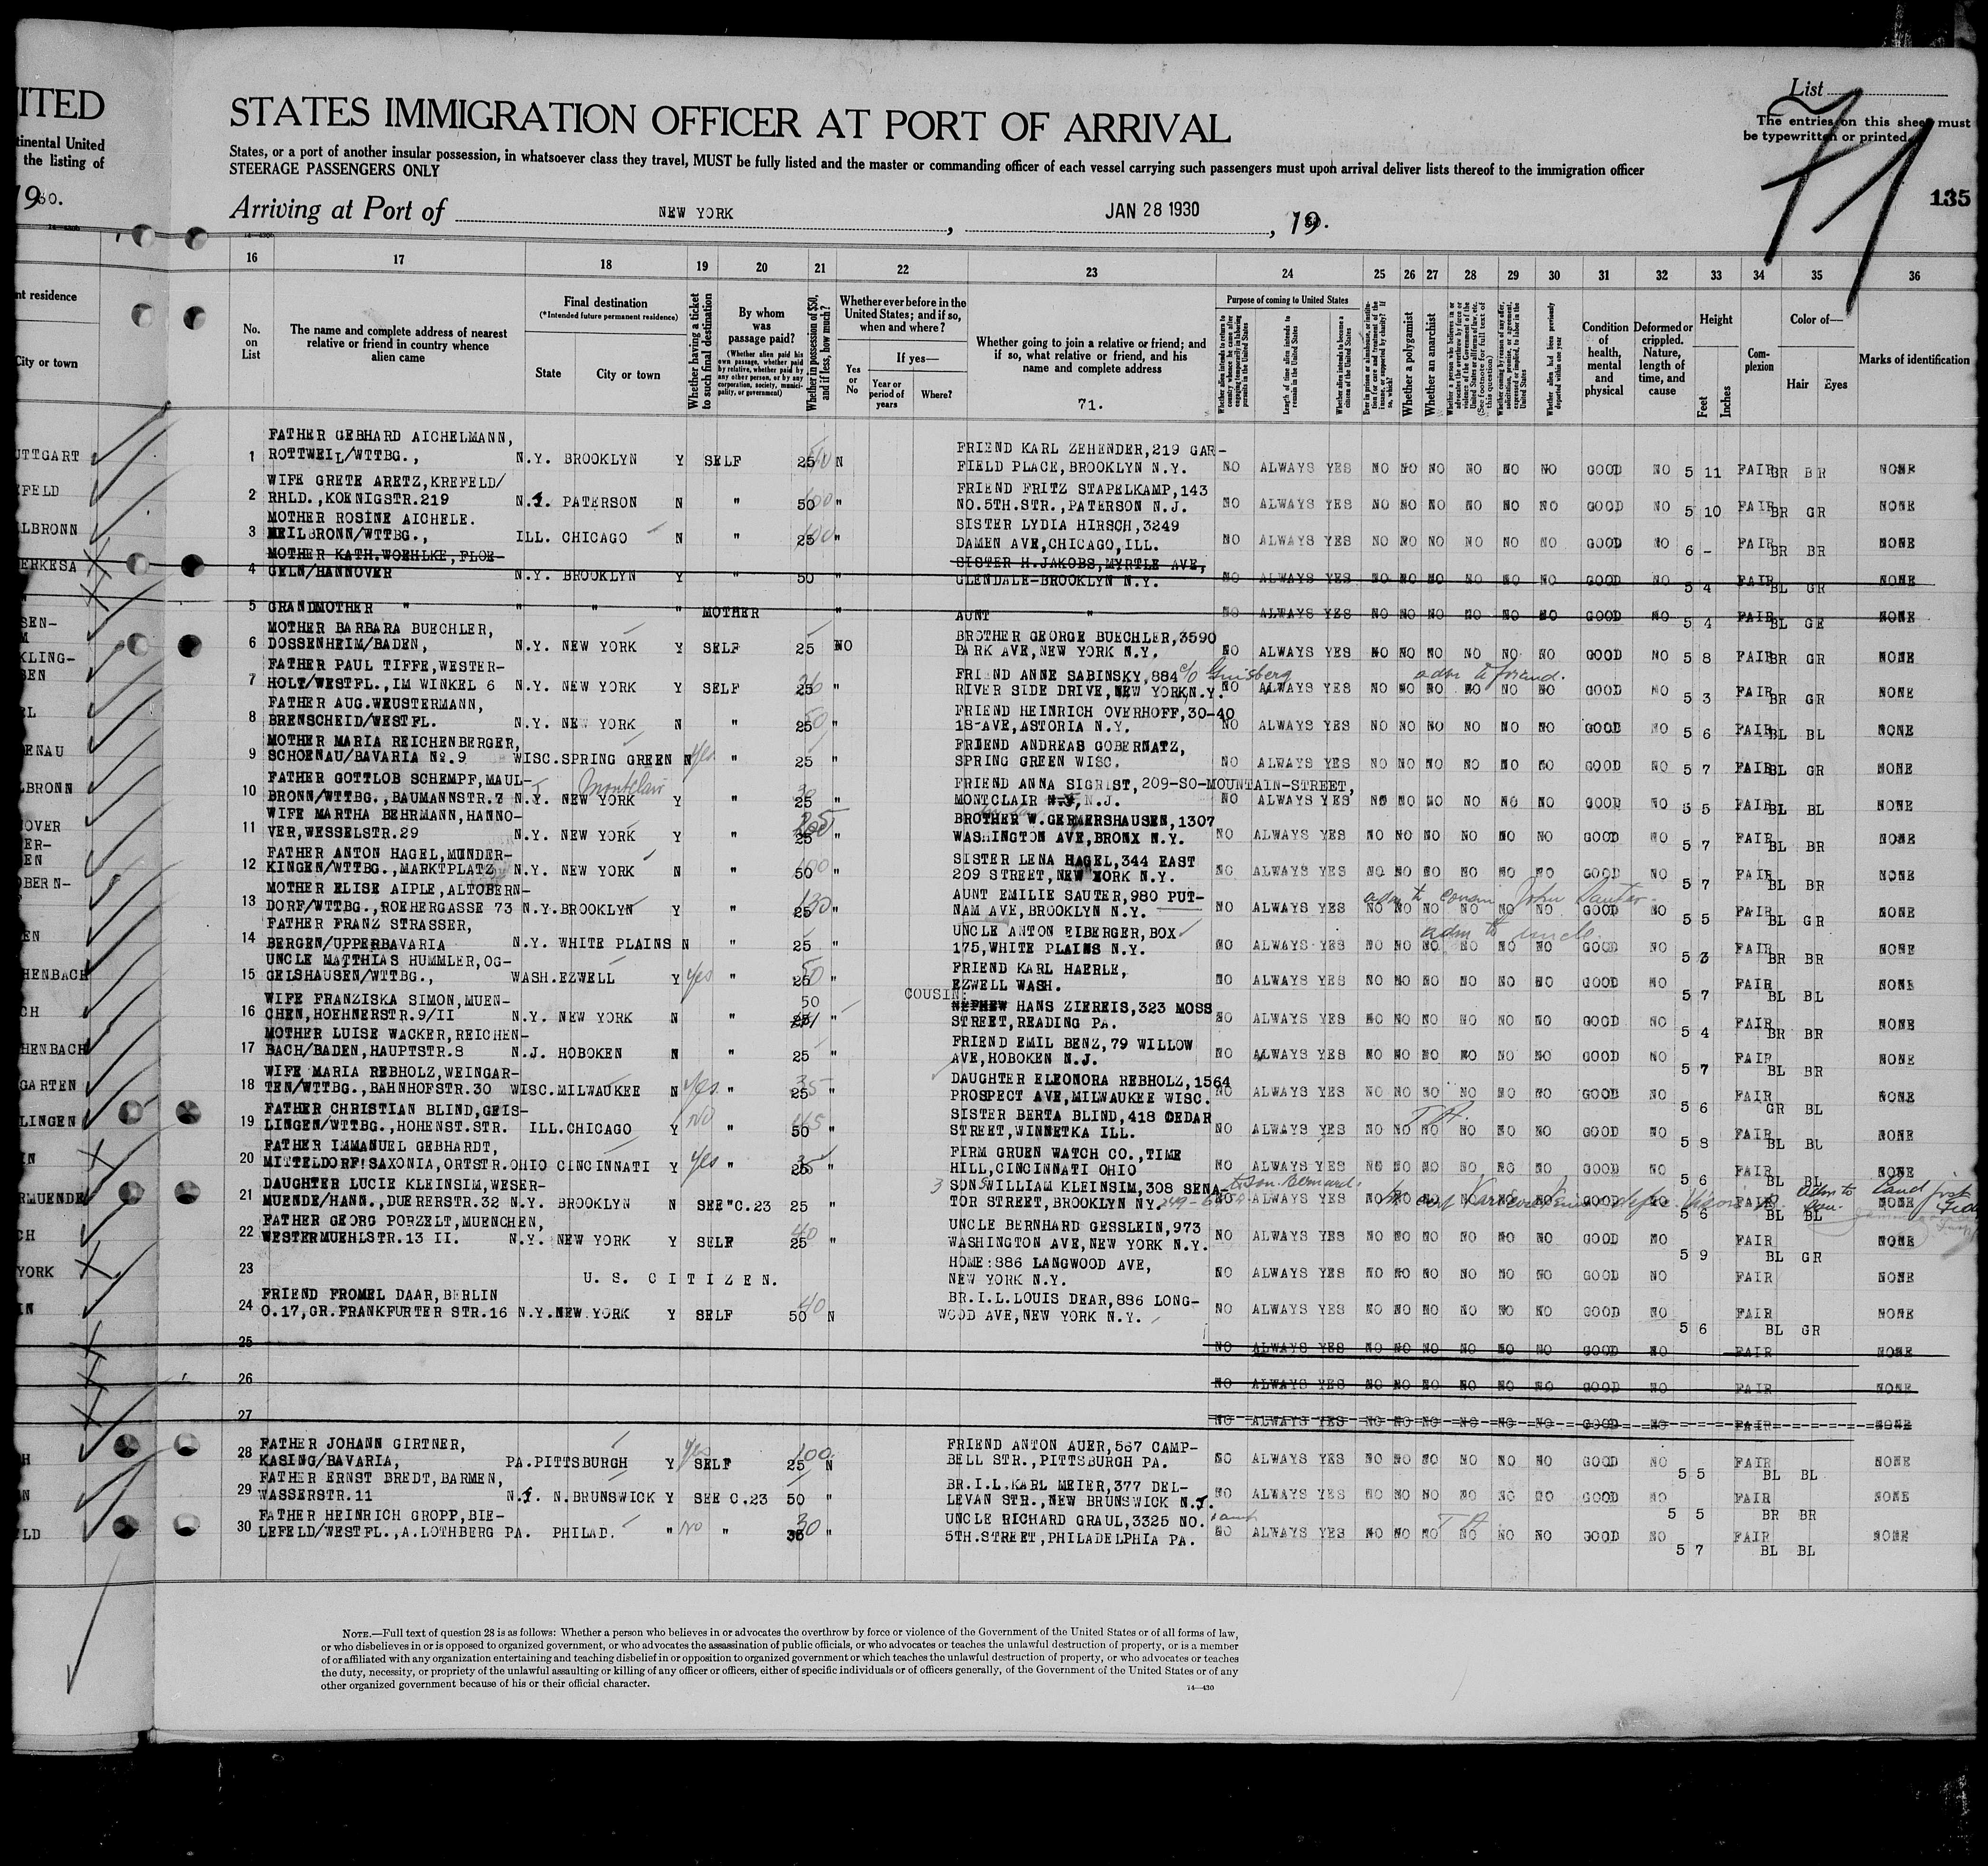 ITED
tinental United
the listing of
1930.
nt residence
City or town
STATES IMMIGRATION OFFICER AT PORT OF ARRIVAL
List 71
The entries on this sheet must
be typewritten or printed.
States, or a port of another insular possession, in whatsoever class they travel, MUST be fully listed and the master or commanding officer of each vessel carrying such passengers must upon arrival deliver lists thereof to the immigration officer
STEERAGE PASSENGERS ONLY
135
Arriving at Port of NEW YORK, JAN 28 1930, 19 .
16 17 18 19 20 21 22 23 24 25 26 27 28 29 30 31 32 33 34 35 36
No. on List
The name and complete address of nearest relative or friend in country whence alien came
Final destination
(*Intended future permanent residence)
State
City or town
Whether having a ticket to such final destination
By whom was passage paid?
(Whether alien paid his own passage, whether paid by relative, whether paid by any other person, or by any corporation, society, municipality, or government)
Whether in possession of $50, and if less, how much?
Whether ever before in the United States; and if so, when and where?
Yes or No
If yes—
Year or period of years
Where?
Whether going to join a relative or friend; and if so, what relative or friend, and his name and complete address
71.
Purpose of coming to United States
Length of time alien intends to remain in the United States
Whether alien intends to become a citizen of the United States
Whether a polygamist
Whether an anarchist
Condition of health, mental and physical
Deformed or crippled. Nature, length of time, and cause
Height
Feet
Inches
Complexion
Color of—
Hair
Eyes
Marks of identification
FATHER GEBHARD AICHELMANN, FRIEND KARL ZEHENDER,219 GAR-
1 ROTTWEIL/WTTBG., N.Y. BROOKLYN Y SELF 25 N FIELD PLACE,BROOKLYN N.Y. NO ALWAYS YES NO NO NO NO NO NO GOOD NO 5 11 FAIR BR BR NONE
WIFE GRETE ARETZ,KREFELD/ FRIEND FRITZ STAPELKAMP,143
2 RHLD.,KOENIGSTR.219 N.J. PATERSON N " 50 " NO.5TH.STR.,PATERSON N.J. NO ALWAYS YES NO NO NO NO NO NO GOOD NO 5 10 FAIR BR GR NONE
MOTHER ROSINE AICHELE. SISTER LYDIA HIRSCH,3249
3 HEILBRONN/WTTBG., ILL. CHICAGO N " 25 " DAMEN AVE,CHICAGO,ILL. NO ALWAYS YES NO NO NO NO NO NO GOOD NO 6 - FAIR BR BR NONE
MOTHER KATH.WOEHLKE,FLOE- SISTER H.JAKOBS,MYRTLE AVE,
4 GELN/HANNOVER N.Y. BROOKLYN Y " 50 " GLENDALE-BROOKLYN N.Y. NO ALWAYS YES NO NO NO NO NO NO GOOD NO 5 4 FAIR BL GR NONE
5 GRANDMOTHER " " " " MOTHER " AUNT " NO ALWAYS YES NO NO NO NO NO NO GOOD NO 5 4 FAIR BL GR NONE
MOTHER BARBARA BUECHLER, BROTHER GEORGE BUECHLER,3590
6 DOSSENHEIM/BADEN, N.Y. NEW YORK Y SELF 25 NO PARK AVE,NEW YORK N.Y. NO ALWAYS YES NO NO NO NO NO NO GOOD NO 5 8 FAIR BR GR NONE
FATHER PAUL TIFFE,WESTER- FRIEND ANNE SABINSKY,884 c/o Ginsberg adm to friend.
7 HOLT/WESTFL.,IM WINKEL 6 N.Y. NEW YORK Y SELF 25 " RIVER SIDE DRIVE,NEW YORK,N.Y. NO ALWAYS YES NO NO NO NO NO NO GOOD NO 5 3 FAIR BR GR NONE
FATHER AUG.WEUSTERMANN, FRIEND HEINRICH OVERHOFF,30-40
8 BRENSCHEID/WESTFL. N.Y. NEW YORK N " 25 50 " 18-AVE,ASTORIA N.Y. NO ALWAYS YES NO NO NO NO NO NO GOOD NO 5 6 FAIR BL BL NONE
MOTHER MARIA REICHENBERGER, FRIEND ANDREAS GOBERNATZ,
9 SCHOENAU/BAVARIA No.9 WISC.SPRING GREEN N yes " 25 " SPRING GREEN WISC. NO ALWAYS YES NO NO NO NO NO NO GOOD NO 5 7 FAIR BL GR NONE
FATHER GOTTLOB SCHEMPF,MAUL- Montclair FRIEND ANNA SIGRIST,209-SO-MOUNTAIN-STREET,
10 BRONN/WTTBG.,BAUMANNSTR.7 N.Y. NEW YORK Y " 25 " MONTCLAIR N.J. NO ALWAYS YES NO NO NO NO NO NO GOOD NO 5 5 FAIR BL BL NONE
WIFE MARTHA BEHRMANN,HANNO- BROTHER W.GERMERSHAUSEN,1307
11 VER,WESSELSTR.29 N.Y. NEW YORK Y " 25 " WASHINGTON AVE,BRONX N.Y. NO ALWAYS YES NO NO NO NO NO NO GOOD NO 5 7 FAIR BL BR NONE
FATHER ANTON HAGEL,MUNDER- SISTER LENA HAGEL,344 EAST
12 KINGEN/WTTBG.,MARKTPLATZ N.Y. NEW YORK N " 50 100 " 209 STREET,NEW YORK N.Y. NO ALWAYS YES NO NO NO NO NO NO GOOD NO 5 7 FAIR BL BR NONE
MOTHER ELISE AIPLE,ALTOBERN- AUNT EMILIE SAUTER,980 PUT- adm to cousin John Sauter.
13 DORF/WTTBG.,ROEHERGASSE 73 N.Y.BROOKLYN Y " 25 130 " NAM AVE,BROOKLYN N.Y. NO ALWAYS YES NO NO NO NO NO NO GOOD NO 5 5 FAIR BL GR NONE
FATHER FRANZ STRASSER, UNCLE ANTON EIBERGER,BOX adm to uncle.
14 BERGEN/UPPERBAVARIA N.Y. WHITE PLAINS N " 25 " 175,WHITE PLAINS N.Y. NO ALWAYS YES NO NO NO NO NO NO GOOD NO 5 3 FAIR BR BR NONE
UNCLE MATTHIAS HUMMLER,OG- FRIEND KARL HAERLE,
15 GELSHAUSEN/WTTBG., WASH.EZWELL Y yes " 25 50 " EZWELL WASH. NO ALWAYS YES NO NO NO NO NO NO GOOD NO 5 7 FAIR BL BL NONE
WIFE FRANZISKA SIMON,MUEN- 50 COUSIN: NEPHEW HANS ZIEREIS,323 MOSS
16 CHEN,HOEHNERSTR.9/II N.Y. NEW YORK N " " STREET,READING PA. NO ALWAYS YES NO NO NO NO NO NO GOOD NO 5 4 FAIR BR BR NONE
MOTHER LUISE WACKER,REICHEN- FRIEND EMIL BENZ,79 WILLOW
17 BACH/BADEN,HAUPTSTR.8 N.J. HOBOKEN N " 25 " AVE,HOBOKEN N.J. NO ALWAYS YES NO NO NO NO NO NO GOOD NO 5 7 FAIR BL BR NONE
WIFE MARIA REBHOLZ,WEINGAR- DAUGHTER ELEONORA REBHOLZ,1564
18 TEN/WTTBG.,BAHNHOFSTR.30 WISC.MILWAUKEE N yes " 25 35 " PROSPECT AVE,MILWAUKEE WISC. NO ALWAYS YES NO NO NO NO NO NO GOOD NO 5 6 FAIR GR BL NONE
FATHER CHRISTIAN BLIND,GEIS- SISTER BERTA BLIND,418 CEDAR
19 LINGEN/WTTBG.,HOHENST.STR. ILL.CHICAGO Y No " 50 " STREET,WINNETKA ILL. NO ALWAYS YES NO NO NO NO NO NO GOOD NO 5 8 FAIR BL BL NONE
FATHER IMMANUEL GEBHARDT, FIRM GRUEN WATCH CO.,TIME
20 MITTELDORF/SAXONIA,ORTSTR. OHIO CINCINNATI Y yes " 25 " HILL,CINCINNATI OHIO NO ALWAYS YES NO NO NO NO NO NO GOOD NO 5 6 FAIR BL BL NONE
DAUGHTER LUCIE KLEINSIM,WESER- 3 SONS WILLIAM KLEINSIM,308 SENA- to son Bernard.
21 MUENDE/HANN.,DUERERSTR.32 N.Y. BROOKLYN N SEE"C.23 25 " TOR STREET,BROOKLYN NY. NO ALWAYS YES NO NO NO NO NO NO GOOD NO 5 5 FAIR BL BL NONE
FATHER GEORG PORZELT,MUENCHEN, UNCLE BERNHARD GESSLEIN,973
22 WESTERMUEHLSTR.13 II. N.Y. NEW YORK Y SELF 25 40 " WASHINGTON AVE,NEW YORK N.Y. NO ALWAYS YES NO NO NO NO NO NO GOOD NO 5 9 FAIR BL GR NONE
HOME:886 LANGWOOD AVE,
23 U. S. C I T I Z E N. NEW YORK N.Y. NO ALWAYS YES NO NO NO NO NO NO GOOD NO FAIR NONE
FRIEND FROMEL DAAR,BERLIN BR.I.L.LOUIS DEAR,886 LONG-
24 O.17,GR.FRANKFURTER STR.16 N.Y.NEW YORK Y SELF 50 40 N WOOD AVE,NEW YORK N.Y. NO ALWAYS YES NO NO NO NO NO NO GOOD NO 5 6 FAIR BL GR NONE
25 NO ALWAYS YES NO NO NO NO NO NO GOOD NO FAIR NONE
26 NO ALWAYS YES NO NO NO NO NO NO GOOD NO FAIR NONE
27 NO ALWAYS YES NO NO NO NO NO NO GOOD NO FAIR NONE
FATHER JOHANN GIRTNER, FRIEND ANTON AUER,567 CAMP-
28 KASING/BAVARIA, PA.PITTSBURGH Y yes SELF 25 100 N BELL STR.,PITTSBURGH PA. NO ALWAYS YES NO NO NO NO NO NO GOOD NO 5 5 FAIR BL BL NONE
FATHER ERNST BREDT,BARMEN, BR.I.L.KARL MEIER,377 DEL-
29 WASSERSTR.11 N.J. N.BRUNSWICK Y SEE C.23 50 " LEVAN STR.,NEW BRUNSWICK N.J. NO ALWAYS YES NO NO NO NO NO NO GOOD NO 5 5 FAIR BR BR NONE
FATHER HEINRICH GROPP,BIE- UNCLE RICHARD GRAUL,3325 NO. + aunt
30 LEFELD/WESTFL.,A.LOTHBERG PA. PHILAD. " No " 30 " 5TH.STREET,PHILADELPHIA PA. NO ALWAYS YES NO NO NO NO NO NO GOOD NO 5 7 FAIR BL BL NONE
NOTE.—Full text of question 28 is as follows: Whether a person who believes in or advocates the overthrow by force or violence of the Government of the United States or of all forms of law,
or who disbelieves in or is opposed to organized government, or who advocates the assassination of public officials, or who advocates or teaches the unlawful destruction of property, or is a member
of or affiliated with any organization entertaining and teaching disbelief in or opposition to organized government or which teaches the unlawful destruction of property, or who advocates or teaches
the duty, necessity, or propriety of the unlawful assaulting or killing of any officer or officers, either of specific individuals or of officers generally, of the Government of the United States or of any
other organized government because of his or their official character.
14—430